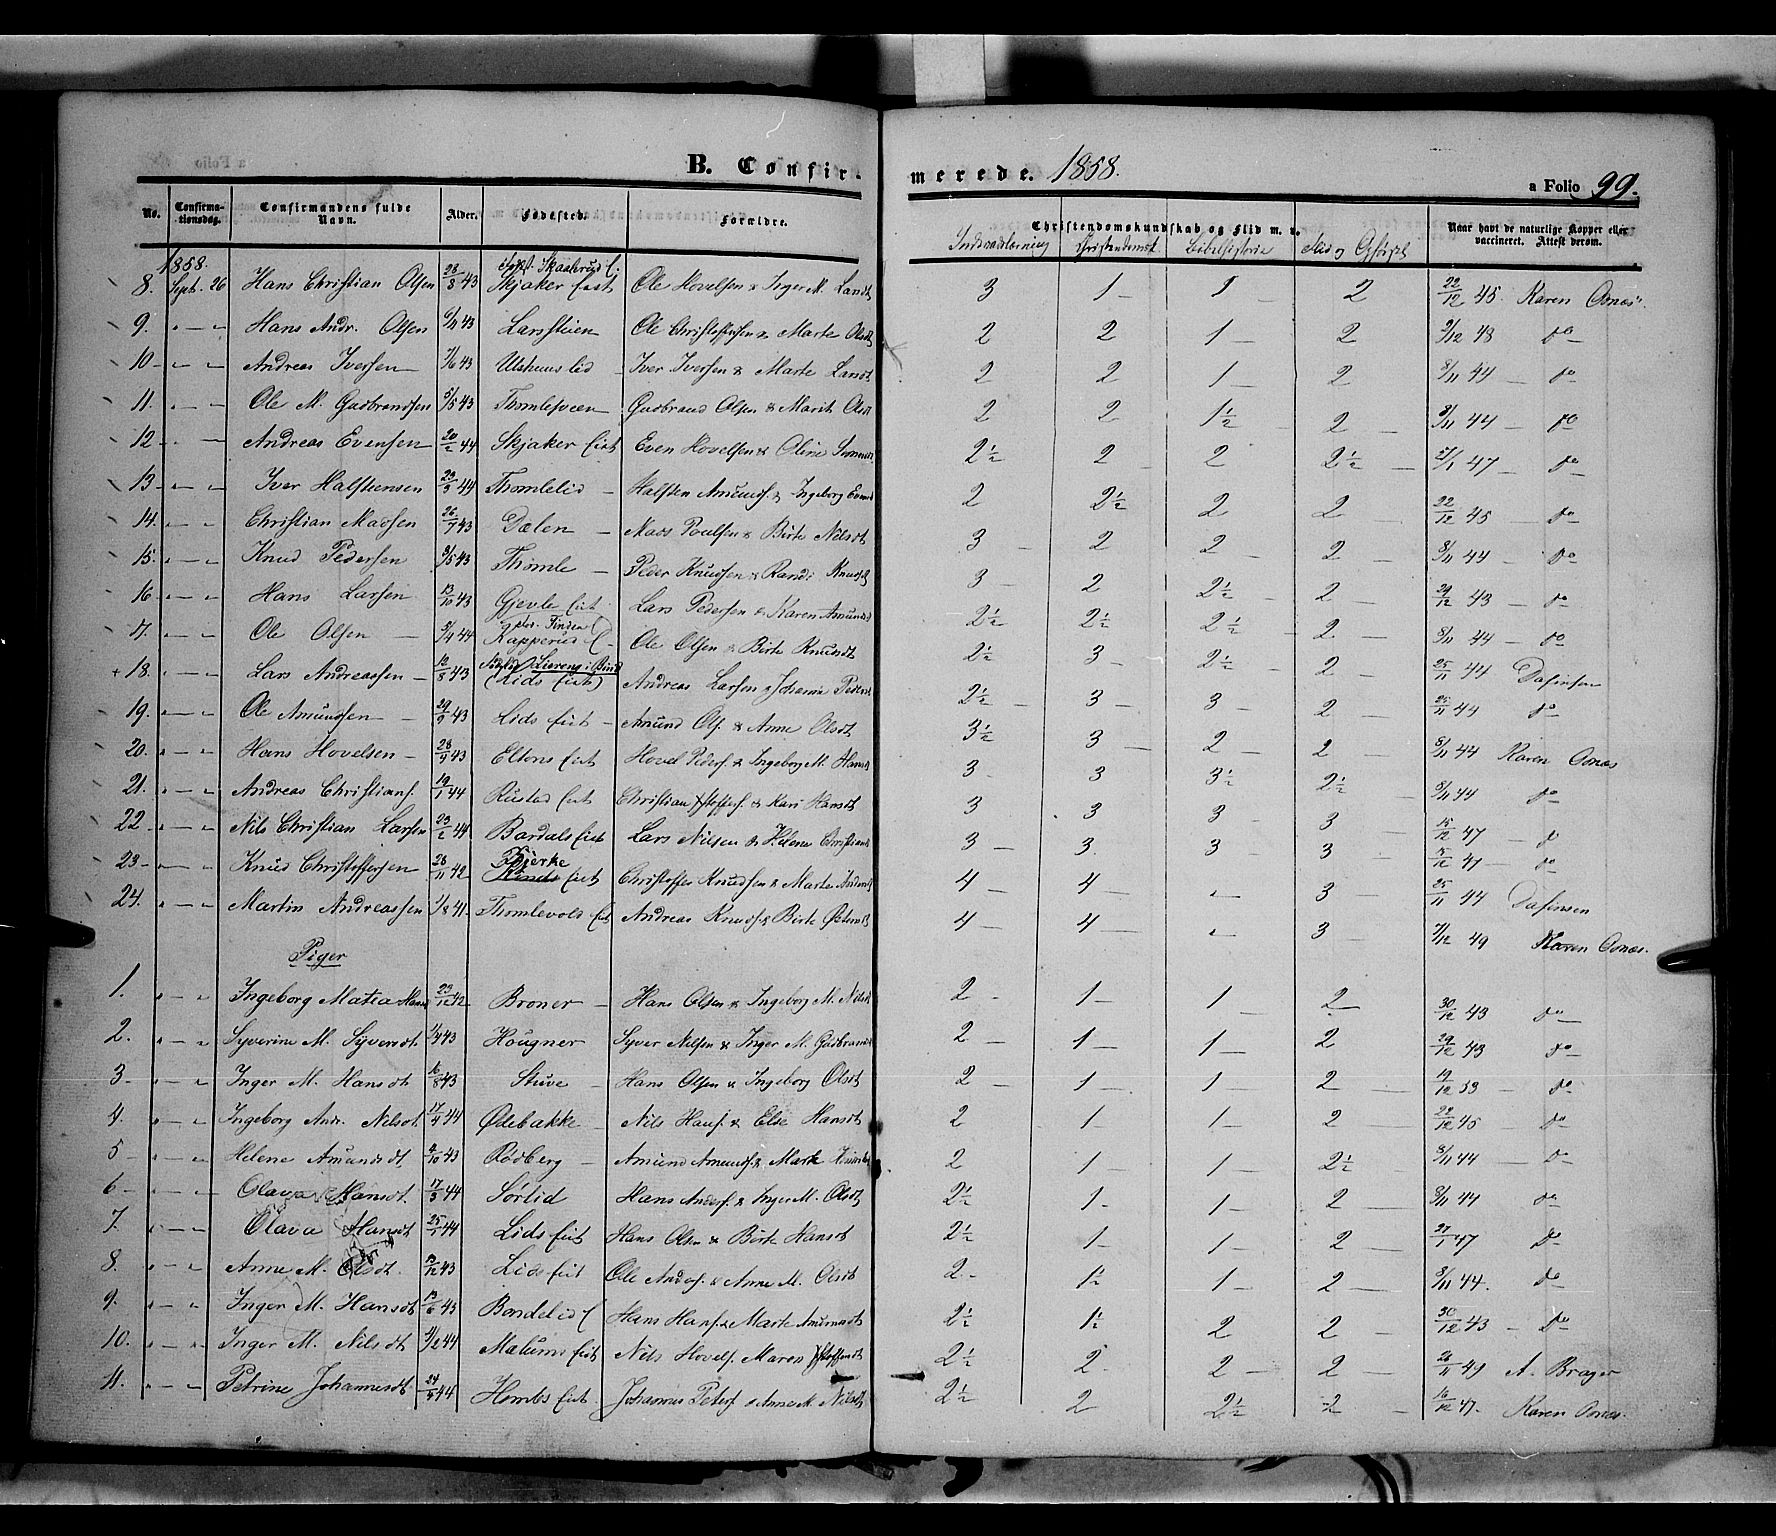 B. Confirmerede. 1858. a Folio 99.
No. Confirmationsdag. Confirmandens fulde Navn. Alder. Fødested. Forældre. Christendomskundskab og Flid m. v. Naar havt de naturlige Kopper eller vaccineret. Attest derom.
Christendomsk Bibelhistorie
1858.
8. Sept. 26 Hans Christian Olsen 28/8 43 Skjaker Eiet Ole Hovelsen & Inger M. Larsdt 3 1 1 2 22/12 45. Karen Osnæs
9. " — " Hans Andr. Olsen 6/11 43 Larssteien Ole Christoffersen & Marte Olsdt 2 2 1 2 9/12 48 do
10 — " Andreas Iversen 7/6 43 Ulshuuslid Iver Iversen & Marte Larsdt 2 2 1 2 8/11 44 do
11. " — " Ole M. Gudbrandsen 5/5 43 Thomlesveen Gudbrand Olsen & Marit Olsdt 2 2 1½ 2 8/11 44 do
12 " — Andreas Evensen 20/2 44 Skjaker Eiet Even Hovelsen & Oline 2½ 2 2 2½ 27/1 47 do
13 — " Iver Halstensen 23/3 44 Thomlelid Halsten Amunds. & Ingeborg 2 2½ 2 2 22/12 45 do
14. " — " Christian Madsen 26/7 43 Dælen Mads Poulsen & Birte Nilsdt 3 2 2 2 8/11 44 do
15. " — " Knud Pedersen 3/5 43 Thomle Peder Knudsen & Randi Knudsdt 3 2 2½ 2 29/12 43 do
16 " — " Hans Larsen 13/10 43 Gjevle Eiet Lars Pedersen & Karen Amundsd 2½ 2½ 2½ 2 8/11 44 do
17. " — " Ole Olsen 3/4 44 Kapperud Ole Olsen & Birte Knudsdt 2½ 3 2½ 2 25/11 44 Dafinsen
+ 18. " — " Lars Andreassen 12/8 43 (Lids Eiet) Andreas Larsen & Johanne Peders 2½ 3 3 2 25/11 44 do
19. " — " Ole Amundsen 29/9 43 Lids Eiet Amund Ols. & Anne Olsdt 3½ 3 2 2 8/11 44 Karen Osnæs
20. " — " Hans Hovelsen 28/9 43 Eltons Eiet Hovel Peders. & Ingeborg M. Hansdt 3 3 3½ 2½ 8/11 44 do
21. " — " Andreas Christians. 19/1 44 Rustad Eiet Christian & Kari Hansdt 3 3 3 3 15/12 47 do
22 — " Nils Christian Larsen 23/2 44 Bardals Eiet Lars Nilsen & Helene Christians 3 3 3 3 5/12 47 do
23 — " Knud Christoffersen 28/11 42 Bjerke Eiet Christoffer Knudsen & Marte 4 4 3 25/11 44 Dafinsen
24. " — " Martin Andreassen 1/8 41. Thomlevold Eiet Andreas Knuds. & Birte Peders 4 4 3 7/12 49 Karen Osnæs.
Piger
1. " — " Ingeborg Matea Hansd 23/12 42 Broner Hans Olsen & Ingeborg M. Nilsdt 2 1 1 2 30/12 43 do
2. " — " Syverine M. Syversdt 1/4 43 Hougner Syver Nilsen & Inger M. Gudbrands 2 1 1 2 29/12 43 do
3 — " — " Inger M. Hansdt 16/8 43 Stuve Hans Olsen & Ingeborg Olsdt 2 1 1 2 19/12 53 do
4. " — " Ingeborg Andr. Nilsdt 17/4 44 Ødebakke Nils Hans. & Else Hansdt 2 1 1 2 22/12 45 do
5 " — " Helene Amundsdt 9/10 43 Rødberg Amund Amunds. & Marte 2 1 1 2½ 8/11 44 do
6 " — " Olava Hansdt. 17/3 44 Sørlid Hans Anders. & Inger M. Olsdt 2½ 1 1 2 8/11 44 do
7. " — " Olava Hansdt 25/1 44 Lids Eiet Hans Olsen & Birte Hansdt 2½ 1 1 2 27/1 47 do
8. " — " Anne M. Olsdt. 13/12 43 Lids Eiet Ole Anders. & Anne M. Olsdt 2 1½ 1 2 8/11 44. do
9. " — " Inger M. Hansdt 13/6 43 Bondelid Hans Hans. & Marte Amundsdt 2½ 1½ 2 2 30/12 43 do
10. " — " Inger M. Nilsdt 4/2 44 Malums Eiet Nils Hovels. Maren 2½ 2 2 2 26/11 49 A. Brager
11. " — " Petrine Johannesdt 24/4 44 Hombs Eiet Johannes Peters. & Anne M. Nilsdt 2½ 2 2½ 2 16/12 47. Karen Osnæs.